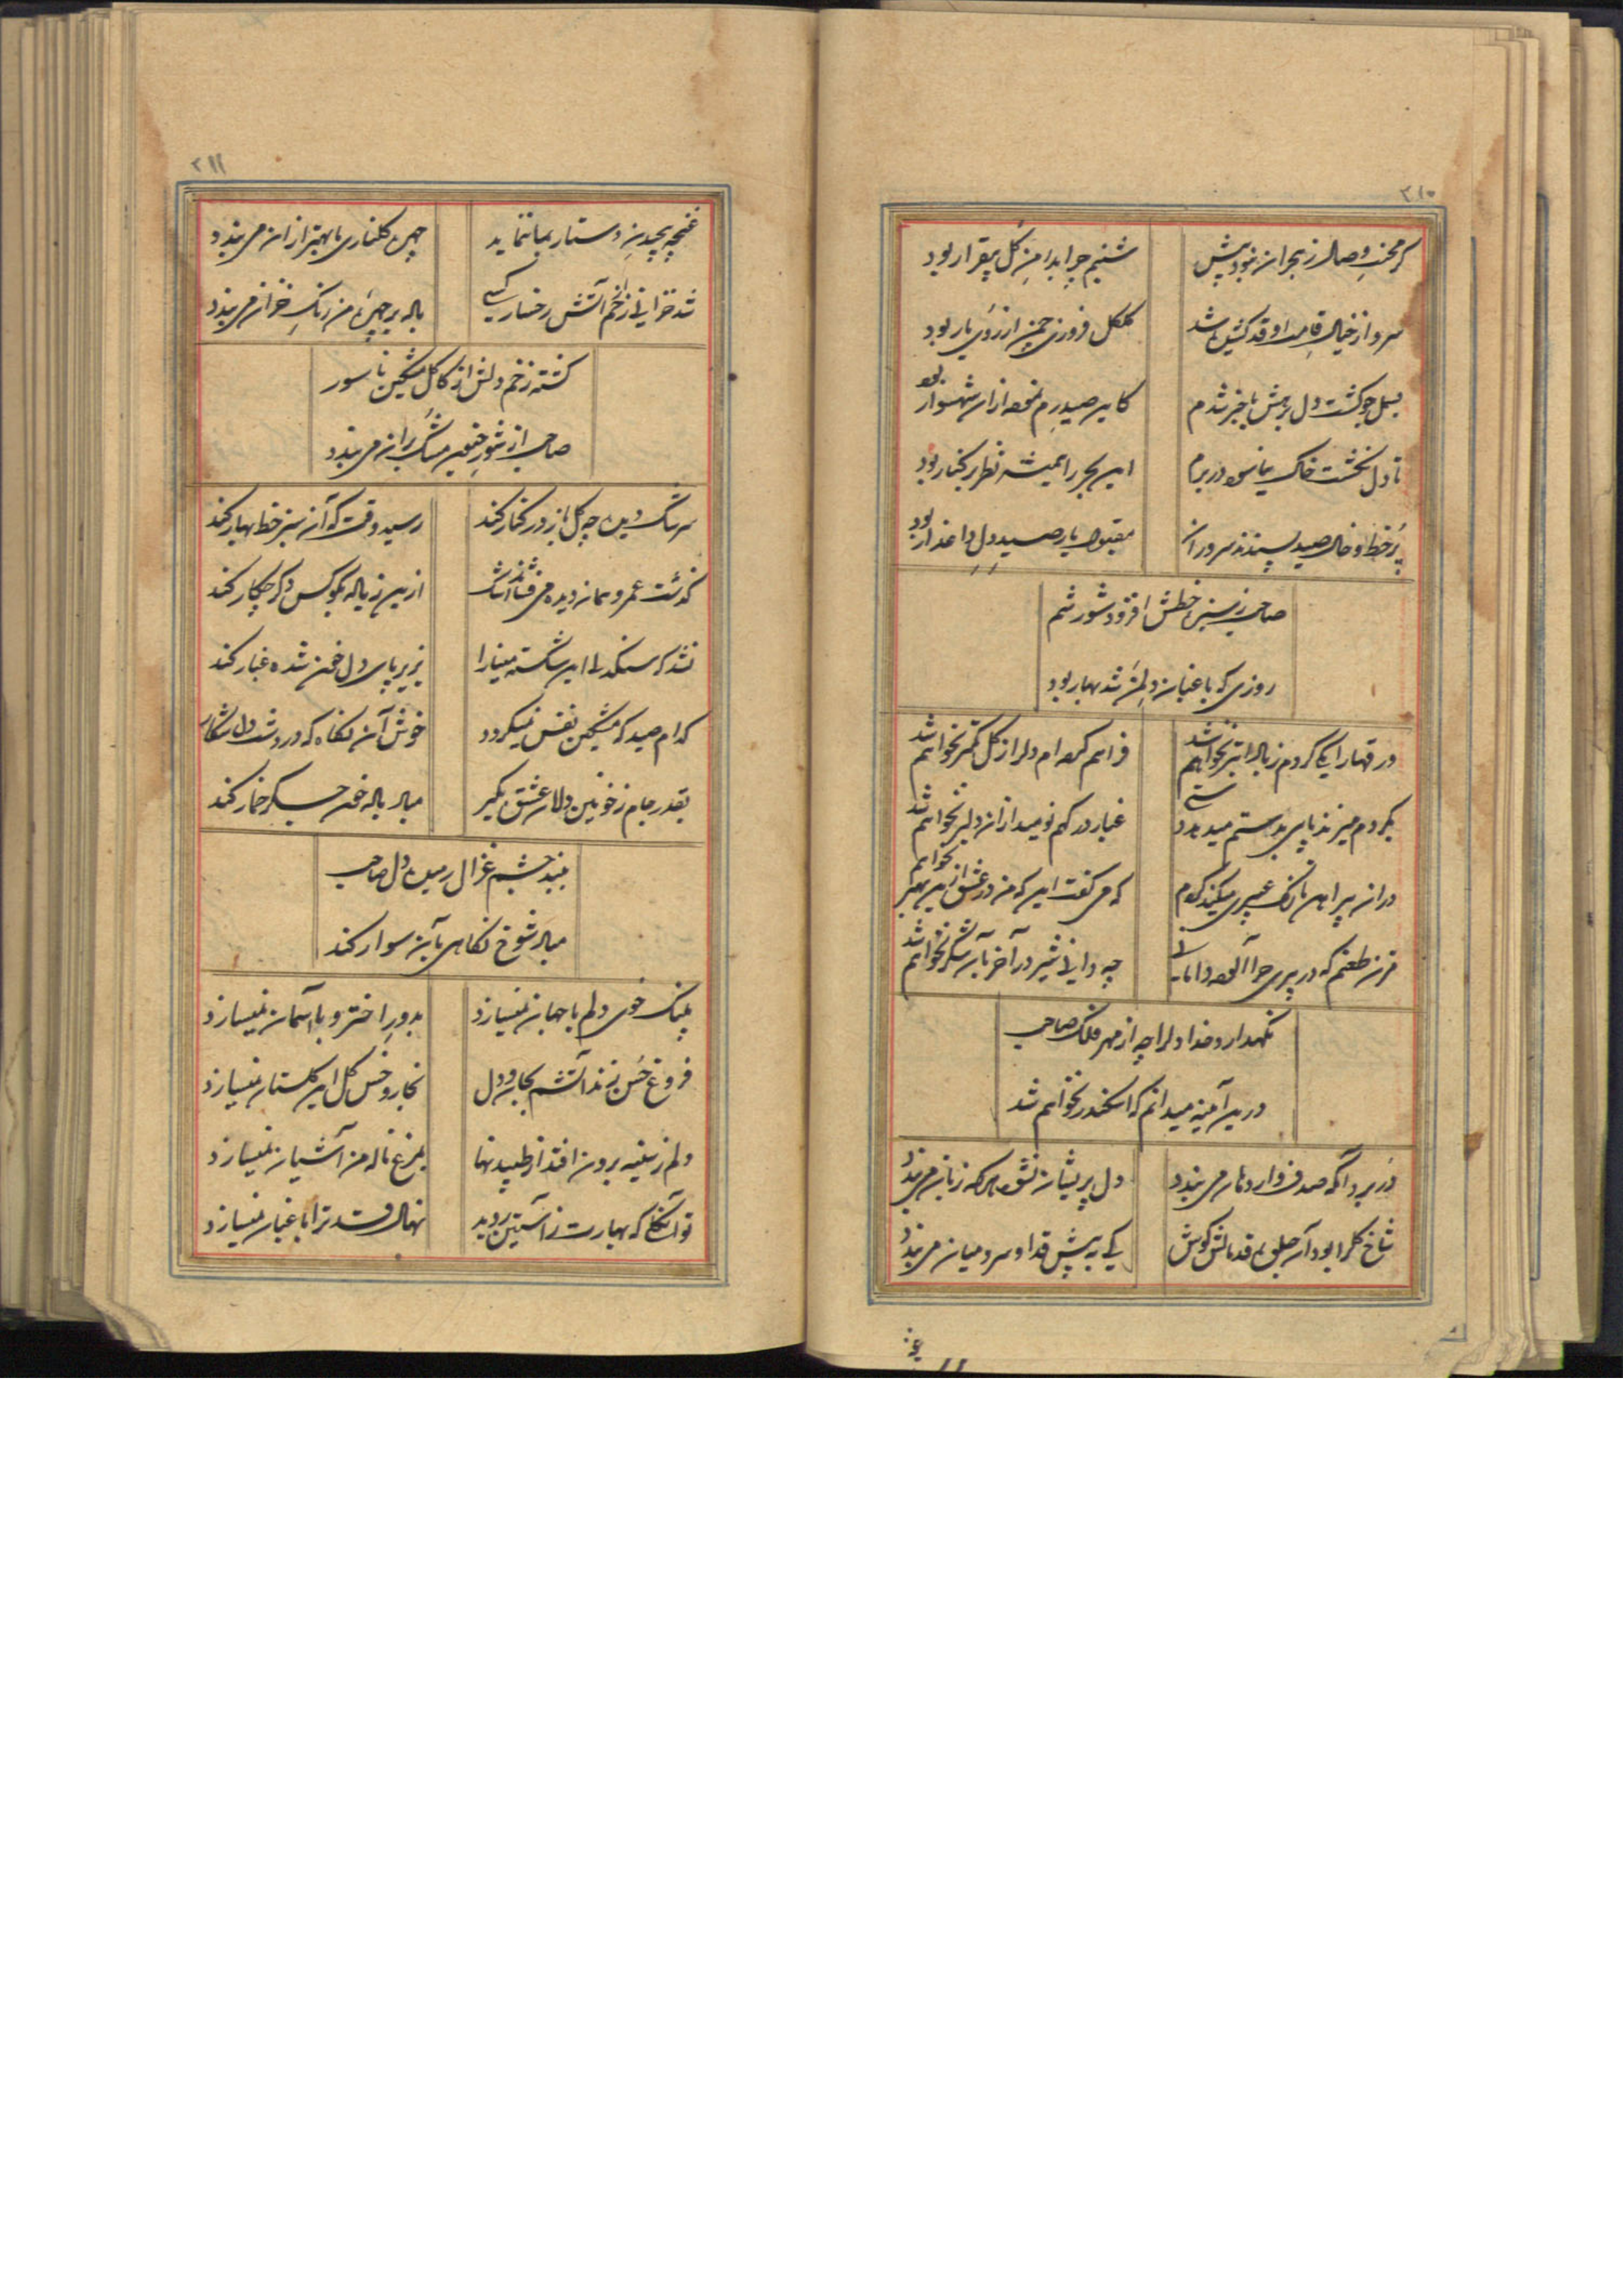 ۲۱۰
گر محنت وصال ز هجران نبود بیش
شبنم چرا بدامن گل بیقرار بود
سرو از خیال قامت او قد کشیده شد
گلگل فروزی چمن از روی یار بود
بسمل چو گشت دل برهش باخبر شدم
کاین صید رم نموده ازان شهسوار بود
تا دل نگشت خاک نیاسود در برم
این بحر را همیشه نظر بر کنار بود
پر خط و خال صید پسندند سروران
مقبول یار صید دل داغدار بود
صاحب ز سبزه خطش افزود شور شم
روزی که باغبان دلم شد بهار بود
ورقها را یکی کردم ز باد ابتر نخواهم شد
فراهم کرده ام دل را ز گل کمتر نخواهم شد
بگردم میزند پای بدستم میدهد دستی
غبار در گهم نومید ازان دلبر نخواهم شد
در ان پیراهن نازک عبیری میکند گردم
که می گفت این که من در عشق ازین بهتر نخواهم شد
مزن طعنم که در پیری چرا آلوده دامانی
چه دانی شیر در آخر بآن شکر نخواهم شد
نگهدارد خدا دل را چه از مهر فلک صاحب
درین آمینه میدانم که اسکندر نخواهم شد
در برد آنکه صدف وار دهان می بندد
دل پریشان نشود هر که زبان می بندد
شاخ گل را بود آن جلوه قد بالش گوش
یکی به پیش قد او سرو میان می بندد
غنچه
۲۱۱
غنچه پیچیدن دستار بما ننماید
چهره گلناری ما بهتر ازان می بندد
شد خزانی ز غم آتش رخسار کسی
باله بر چهره من رنگ خزان می بندد
گشته زخم دلش از کاکل مشکین ناسور
صاحب از شور جنون مشک بران می بندد
سرشک دیده چه گل باز در کنار کند
رسید وقت که آن سبز خط بهار کند
گذشت عمر و همان دیده می فشاند اشک
ازین زیاله بگو کس دگر چکار کند
نشد که سنگدلی این شکسته مینا را
بزیر پای دل خون شده غبار کند
کدام صید که مشکین نفس نمیگردد
خوش آن نگاه که در دشت دل شکار کند
بقدر جام ز خونین دلان عشق مگیر
مباد باله خون جگر خمار کند
ببند چشم غزال رمیده دل صاحب
مباد شوخ نگاهی بآن سوار کند
پلنگ خوی دلم با جهان نمیسازد
بدور اختر و با آسمان نمیسازد
فروغ حسن زند آتشم بجان و دل
بخار و خس گل این گلستان نمیسازد
دلم ز سینه برون افتد از طپیدنها
بمرغ ناله من آشیان نمیسازد
تو آن گلی که بهارت ز آستین روید
نهال قد ترا باغبان نمیسازد